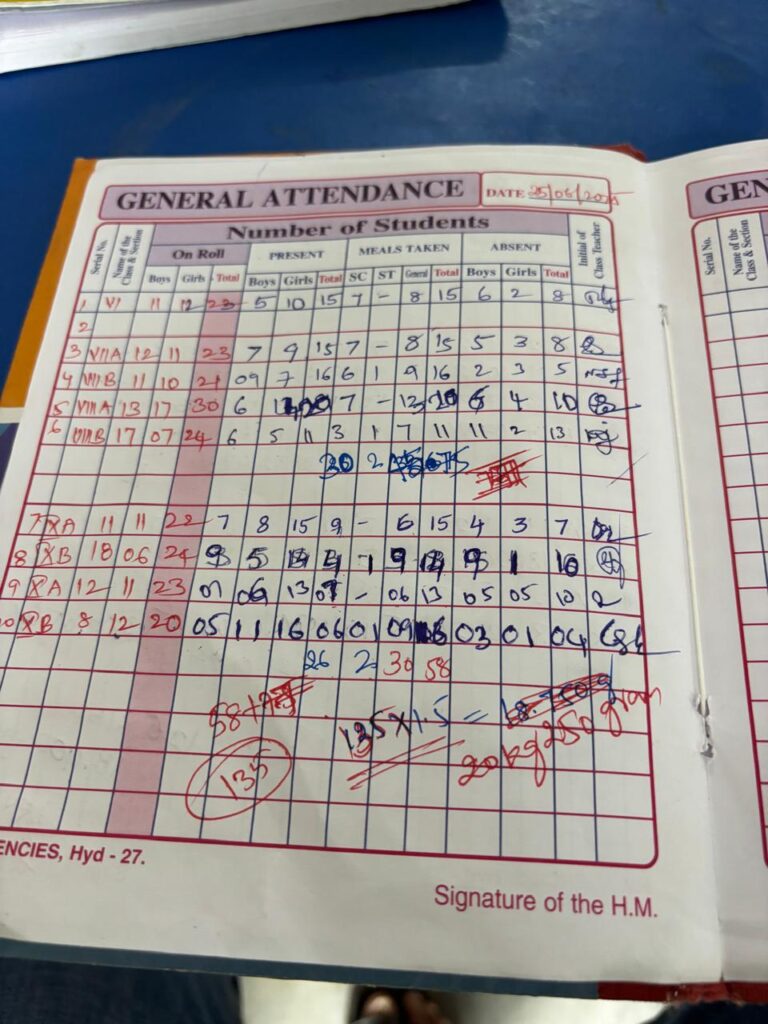 GENERAL ATTENDANCE DATE 25/06/2025
Number of Students
Serial No. Name of the Class & Section On Roll PRESENT MEALS TAKEN ABSENT Initial of Class Teacher
Boys Girls Total Boys Girls Total SC ST General Total Boys Girls Total
1 VI 11 12 23 5 10 15 7 - 8 15 6 2 8
2
3 VII A 12 11 23 7 9 15 7 - 8 15 5 3 8
4 VII B 11 10 21 09 7 16 6 1 9 16 2 3 5
5 VIII A 13 17 30 6 20 7 - 13 20 4 10
6 VIII B 17 07 24 6 5 11 3 1 7 11 11 2 13
30 2 75
7 IX A 11 11 22 7 8 15 9 - 6 15 4 3 7
8 IX B 18 06 24 9 5 14 4 1 9 14 9 1 10
9 X A 12 11 23 07 06 13 07 - 06 13 05 05 10
10 X B 8 12 20 05 11 16 06 01 09 16 03 01 04
26 2 30 58
58+
135 135 X 1.5 = 20 kg 250 gram
ENCIES, Hyd - 27.
Signature of the H.M.
GEN
Serial No. Name of the Class & Section